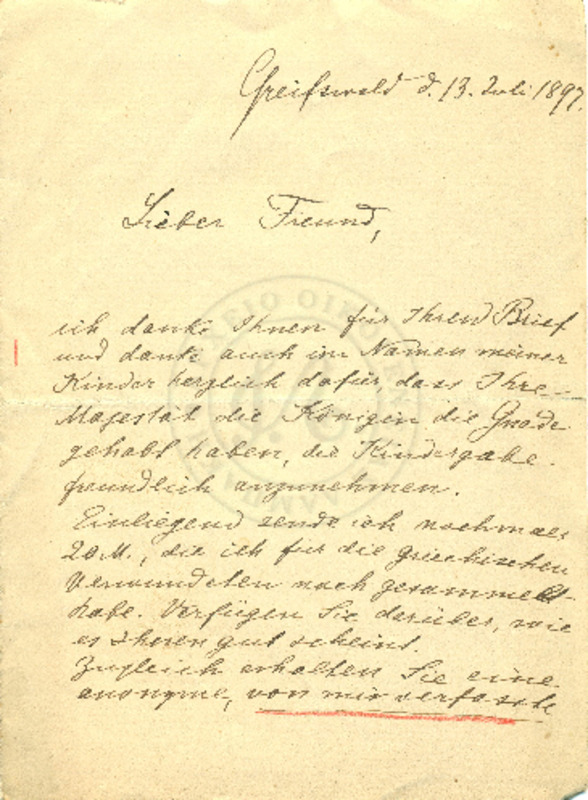 Greifswald d. 13. Juli 1897.
Lieber Freund,
ich danke Ihnen für Ihren Brief
und danke auch im Namen meiner
Kinder herzlich dafür, dass Ihre
Majestät die Königen die Gnade
gehabt haben, die Kindergabe
freundlich anzunehmen.
Einliegend sende ich nochmals
20 M., die ich für die griechischen
Verwundeten noch gesammelt
habe. Verfügen Sie darüber, wie
es Ihnen gut scheint.
Zugleich erhalten Sie eine
anonyme, von mir verfasste